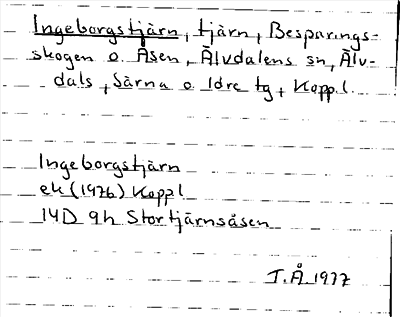 Ingeborgstjärn, tjärn, Besparings-
skogen o. Åsen, Älvdalens sn, Älv-
dals, Särna o Idre tg, Koppl.
Ingeborgstjärn
ek (1976) Koppl
14D 9h Stortjärnsåsen
T.Å 1977